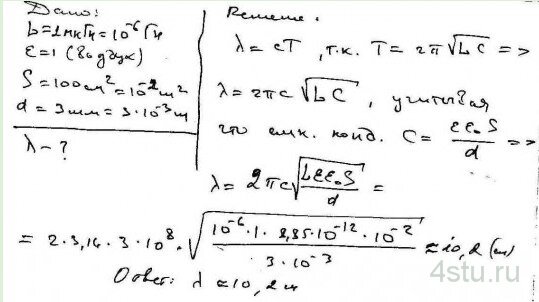 Дано:
L = 1 мкГн = 10⁻⁶ Гн
ε = 1 (Воздух)
S = 100 см² = 10⁻² м²
d = 3 мм = 3·10⁻³ м
λ – ?
Решение.
λ = cT, т.к. T = 2π√LC =>
λ = 2πc √LC, учитывая
что емк. конд. C = εε₀S/d =>
λ = 2πc √(Lεε₀S/d) =
= 2·3,14·3·10⁸·√(10⁻⁶·1·8,85·10⁻¹²·10⁻²/3·10⁻³) ≈ 10,2 (м)
Ответ: λ ≈ 10,2 м
4stu.ru